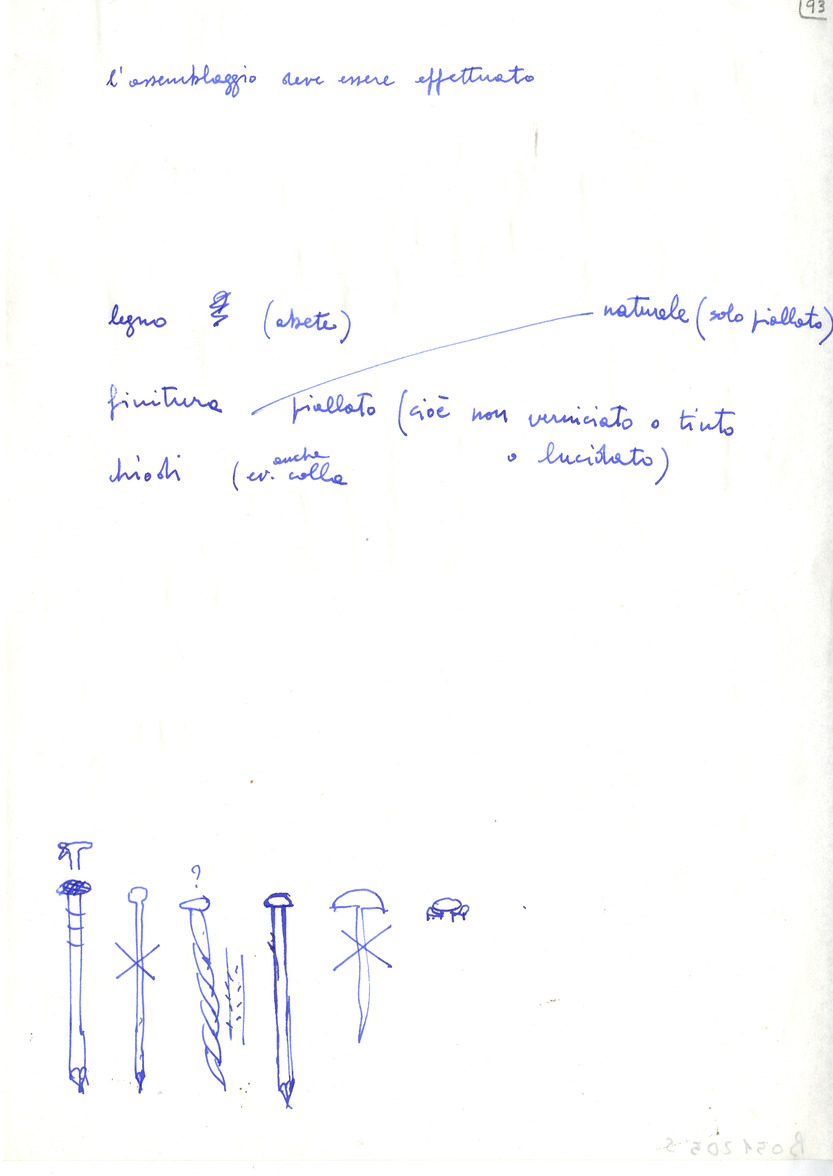 93
l'assemblaggio deve essere effettuato
legno (abete)
naturale (solo piallato)
finitura piallato (cioè non verniciato o tinto
o lucidato)
chiodi (ev. anche colla
?